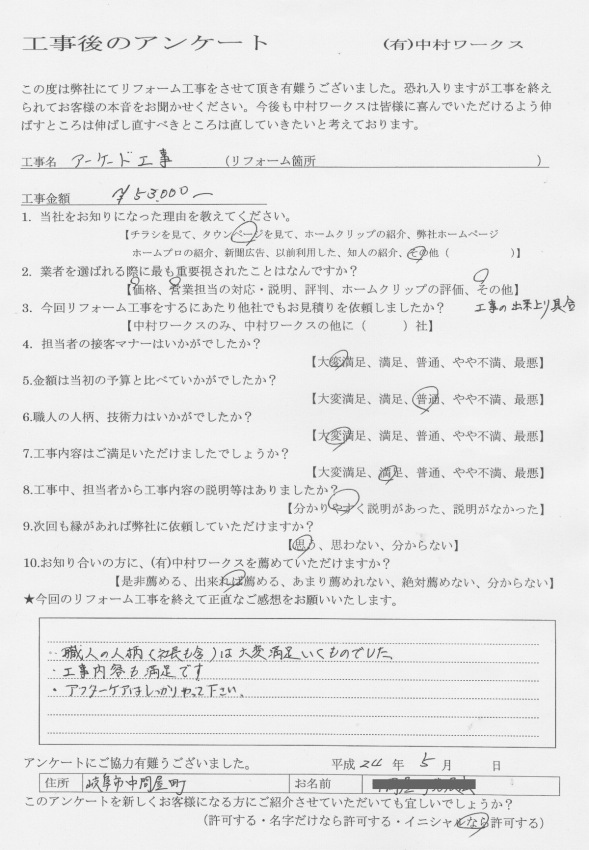 工事後のアンケート　(有)中村ワークス
この度は弊社にてリフォーム工事をさせて頂き有難うございました。恐れ入りますが工事を終え
られてお客様の本音をお聞かせください。今後も中村ワークスは皆様に喜んでいただけるよう伸
ばすところは伸ばし直すべきところは直していきたいと考えております。
工事名　アーケード工事　(リフォーム箇所　)
工事金額　￥53,000ー
1. 当社をお知りになった理由を教えてください。
【チラシを見て、タウンページを見て、ホームクリップの紹介、弊社ホームページ
ホームプロの紹介、新聞広告、以前利用した、知人の紹介、その他（　）】
2. 業者を選ばれる際に最も重要視されたことはなんですか？
【価格、営業担当の対応・説明、評判、ホームクリップの評価、その他】
工事の出来上り具合
3. 今回リフォーム工事をするにあたり他社でもお見積りを依頼しましたか？
【中村ワークスのみ、中村ワークスの他に（　）社】
4. 担当者の接客マナーはいかがでしたか？
【大変満足、満足、普通、やや不満、最悪】
5.金額は当初の予算と比べていかがでしたか？
【大変満足、満足、普通、やや不満、最悪】
6.職人の人柄、技術力はいかがでしたか？
【大変満足、満足、普通、やや不満、最悪】
7.工事内容はご満足いただけましたでしょうか？
【大変満足、満足、普通、やや不満、最悪】
8.工事中、担当者から工事内容の説明等はありましたか？
【分かりやすく説明があった、説明がなかった】
9.次回も縁があれば弊社に依頼していただけますか？
【思う、思わない、分からない】
10.お知り合いの方に、(有)中村ワークスを薦めていただけますか？
【是非薦める、出来れば薦める、あまり薦めれない、絶対薦めない、分からない】
★今回のリフォーム工事を終えて正直なご感想をお願いいたします。
・職人の人柄(社長も含)は大変満足いくものでした
・工事内容も満足です
・アフターケアはしっかりやって下さい。
アンケートにご協力有難うございました。　平成24年5月　日
住所　岐阜市中問屋町　お名前
このアンケートを新しくお客様になる方にご紹介させていただいても宜しいでしょうか？
（許可する・名字だけなら許可する・イニシャルなら許可する）